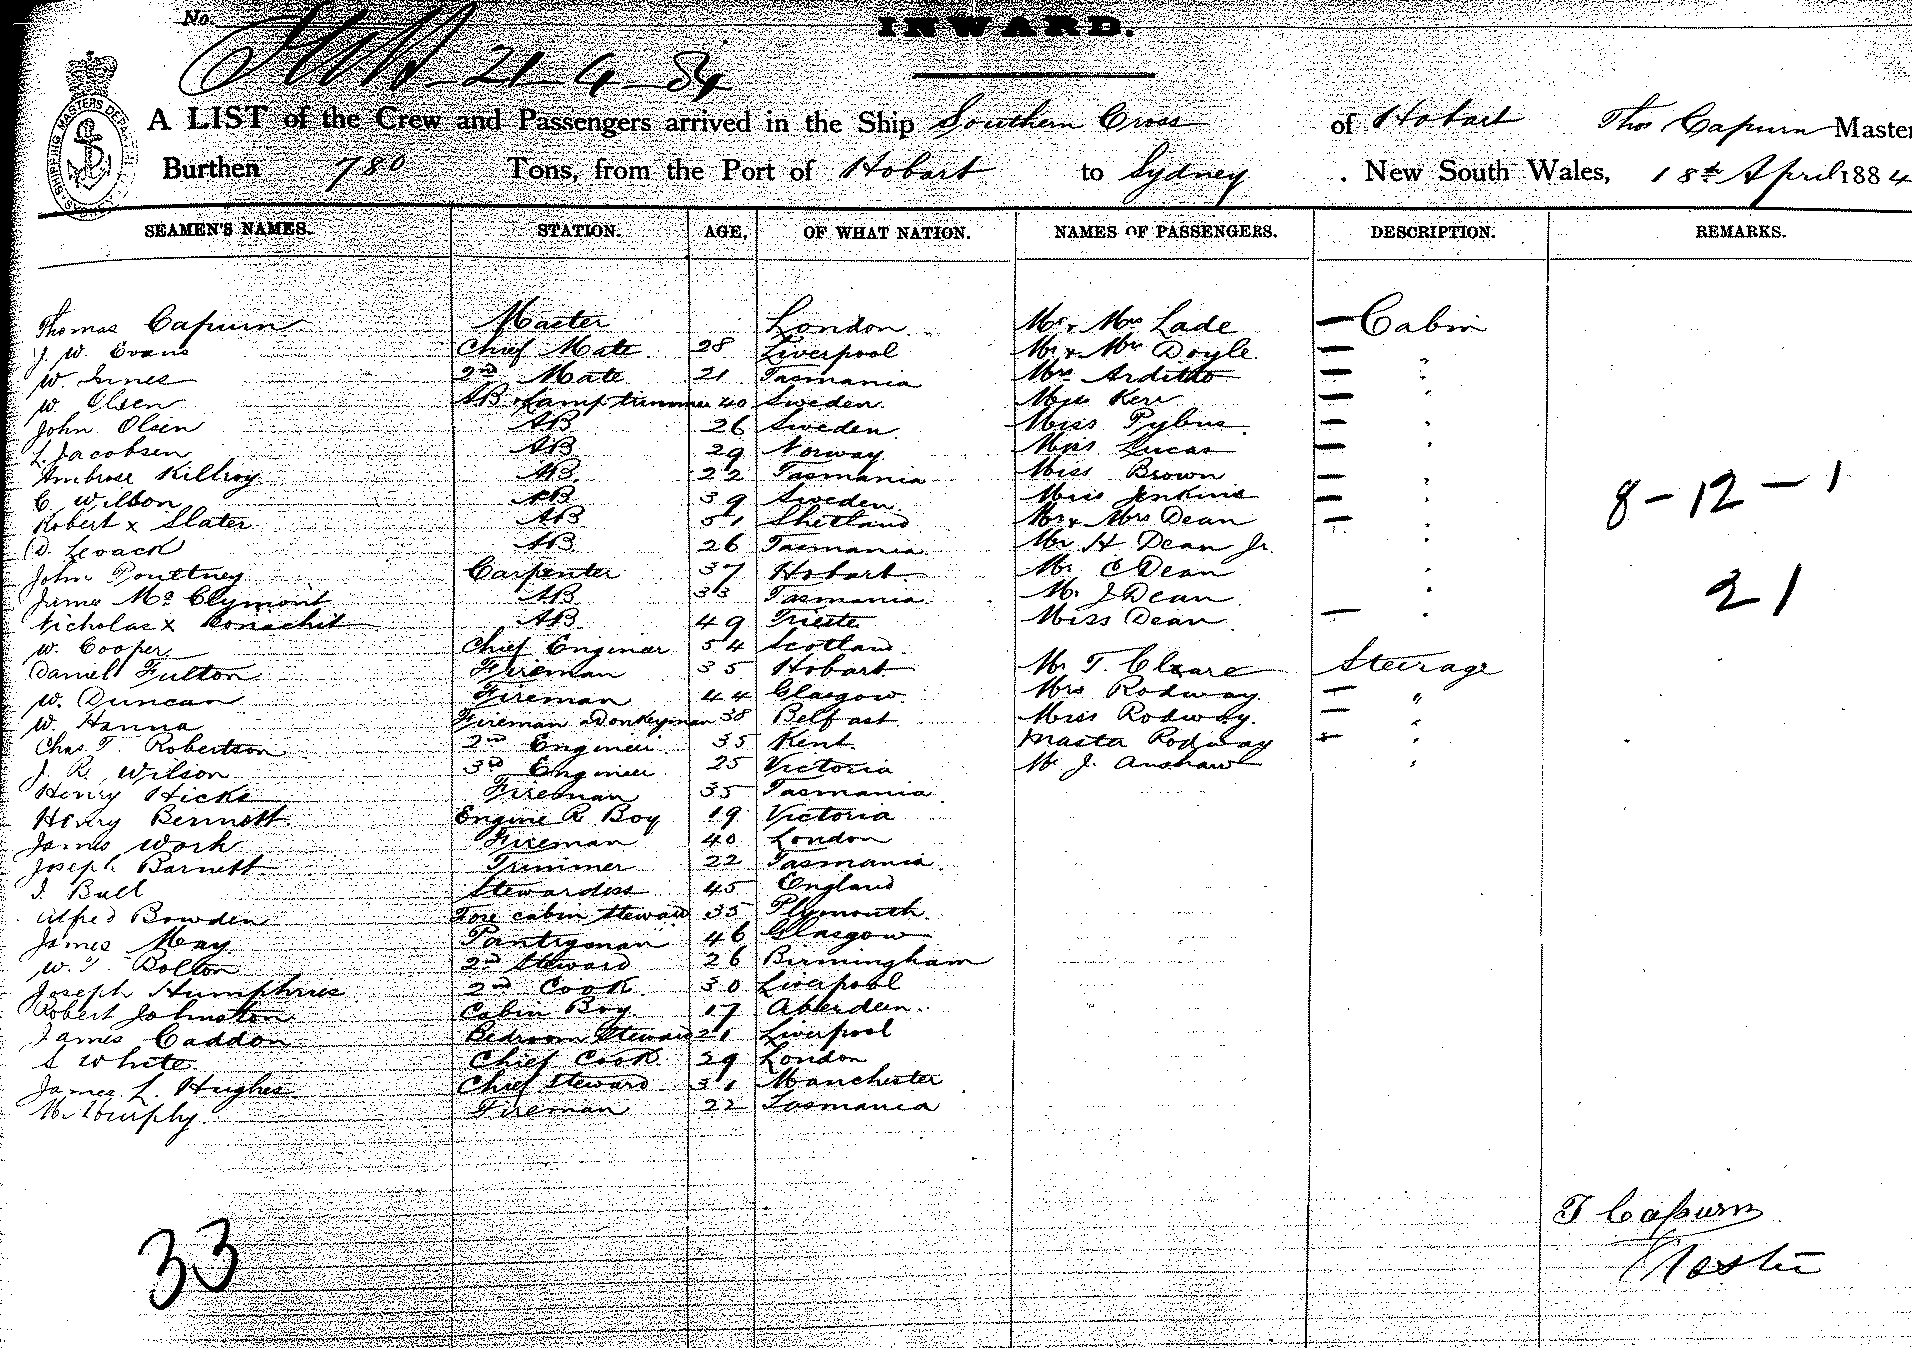 No.
INWARD.
21-4-84
A LIST of the Crew and Passengers arrived in the Ship Southern Cross of Hobart Thos Capurn Master
Burthen 780 Tons, from the Port of Hobart to Sydney . New South Wales, 18th April 1884
SEAMEN'S NAMES. STATION. AGE, OF WHAT NATION. NAMES OF PASSENGERS. DESCRIPTION. REMARKS.
Thomas Capurn Master London Mr & Mrs Lade — Cabin
J. W. Evans Chief Mate 28 Liverpool Mr & Mrs Doyle — "
W. Innes 2nd Mate 21 Tasmania Mrs — "
W. Olsen AB & Lamp trimmer 40 Sweden Miss Kerr — "
John Olsen AB 26 Sweden Miss Pybus — "
L. Jacobsen AB 29 Norway Miss Lucas — "
Ambrose Killroy AB 22 Tasmania Miss Brown — "
C. Wilson AB 39 Sweden Miss Jenkins — "
Robert x Slater AB 51 Shetland Mr & Mrs Dean — "
D. Levack AB 26 Tasmania Mr H Dean Jr. "
John Poultney Carpenter 37 Hobart Mr C Dean "
James McClymont AB 33 Tasmania Mr J Dean "
Nicholas x AB 49 Trieste Miss Dean — "
W. Cooper Chief Engineer 54 Scotland
Daniel Fulton Fireman 35 Hobart Mr T. Cleare Steerage
W. Duncan Fireman 44 Glasgow Mrs Rodway — "
W. Hanna Fireman & Donkeyman 38 Belfast Miss Rodway — "
Chas T. Robertson 2nd Engineer 35 Kent Masta Rodway — "
J. R. Wilson 3rd Engineer 25 Victoria Mr J. Anshaw "
Henry Hicks Fireman 35 Tasmania
Henry Bennett Engine R Boy 19 Victoria
James Work Fireman 40 London
Joseph Barnett Trimmer 22 Tasmania
J. Bull Stewardess 45 England
Alfred Bowden Fore cabin steward 35 Plymouth
James May Pantryman 46 Glasgow
W. T. Bolton 2nd Steward 26 Birmingham
Joseph Humphries 2nd Cook 30 Liverpool
Robert Johnston Cabin Boy 17 Aberdeen
James Caddon Bedroom Steward 21 Liverpool
S White Chief Cook 29 London
James L. Hughes Chief Steward 31 Manchester
M. Murphy Fireman 22 Tasmania
8-12-1
21
33
T Capurn
Master